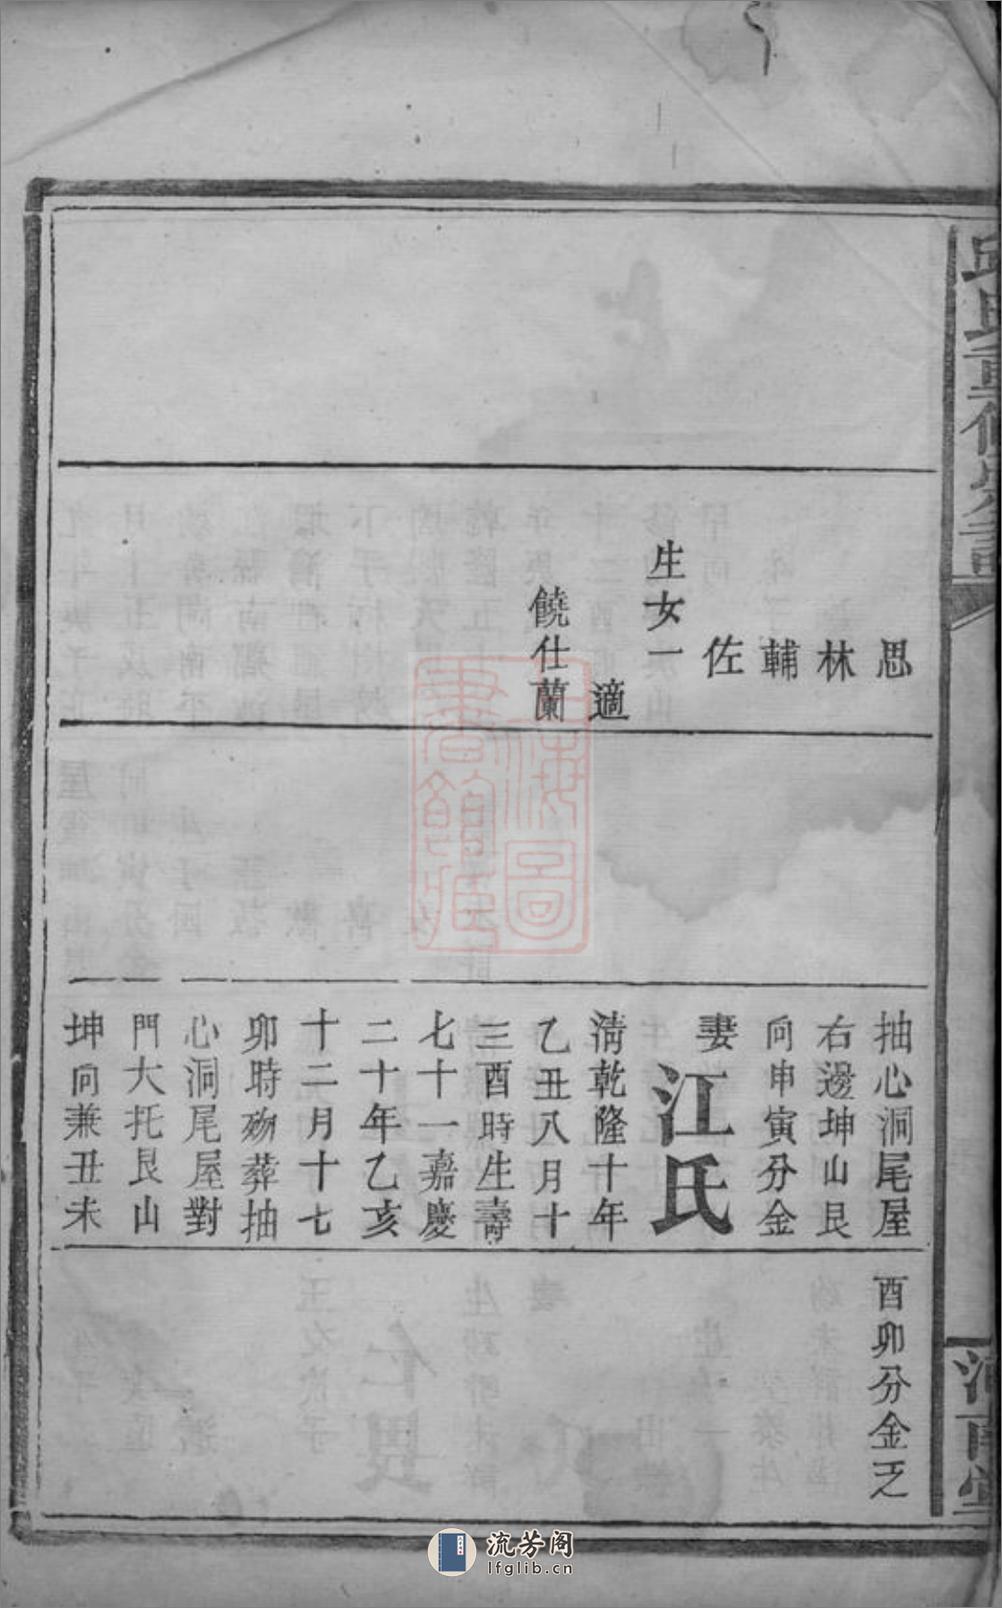 邱氏重修宗譜
思
林
輔
佐
生女一
適
饒仕蘭
抽心洞尾屋
右邊坤山艮
向申寅分金
妻
江氏
淸乾隆十年
乙丑八月十
三酉時生壽
七十一嘉慶
二十年乙亥
十二月十七
卯時歿葬抽
心洞尾屋對
門大托艮山
坤向兼丑未
酉卯分金乏
上海圖書館藏
流芳阁
lfglib.cn